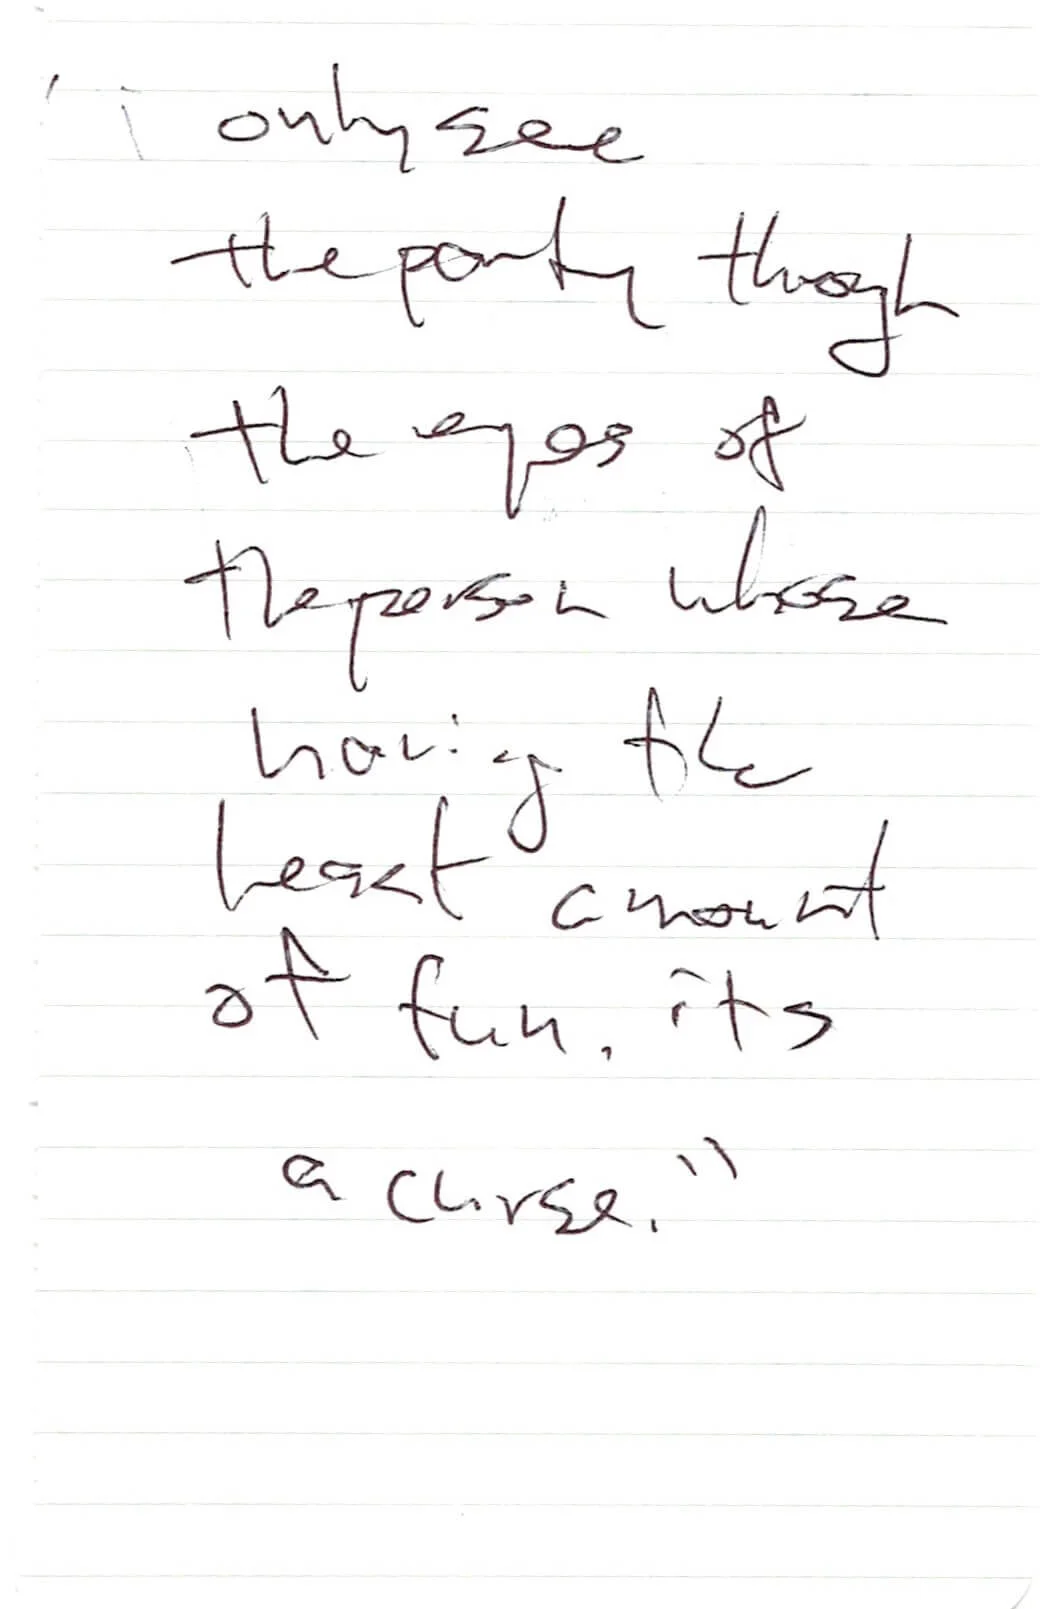 "i only see
the party though
the eyes of
the person whose
having the
least amount
of fun. its
a curse."